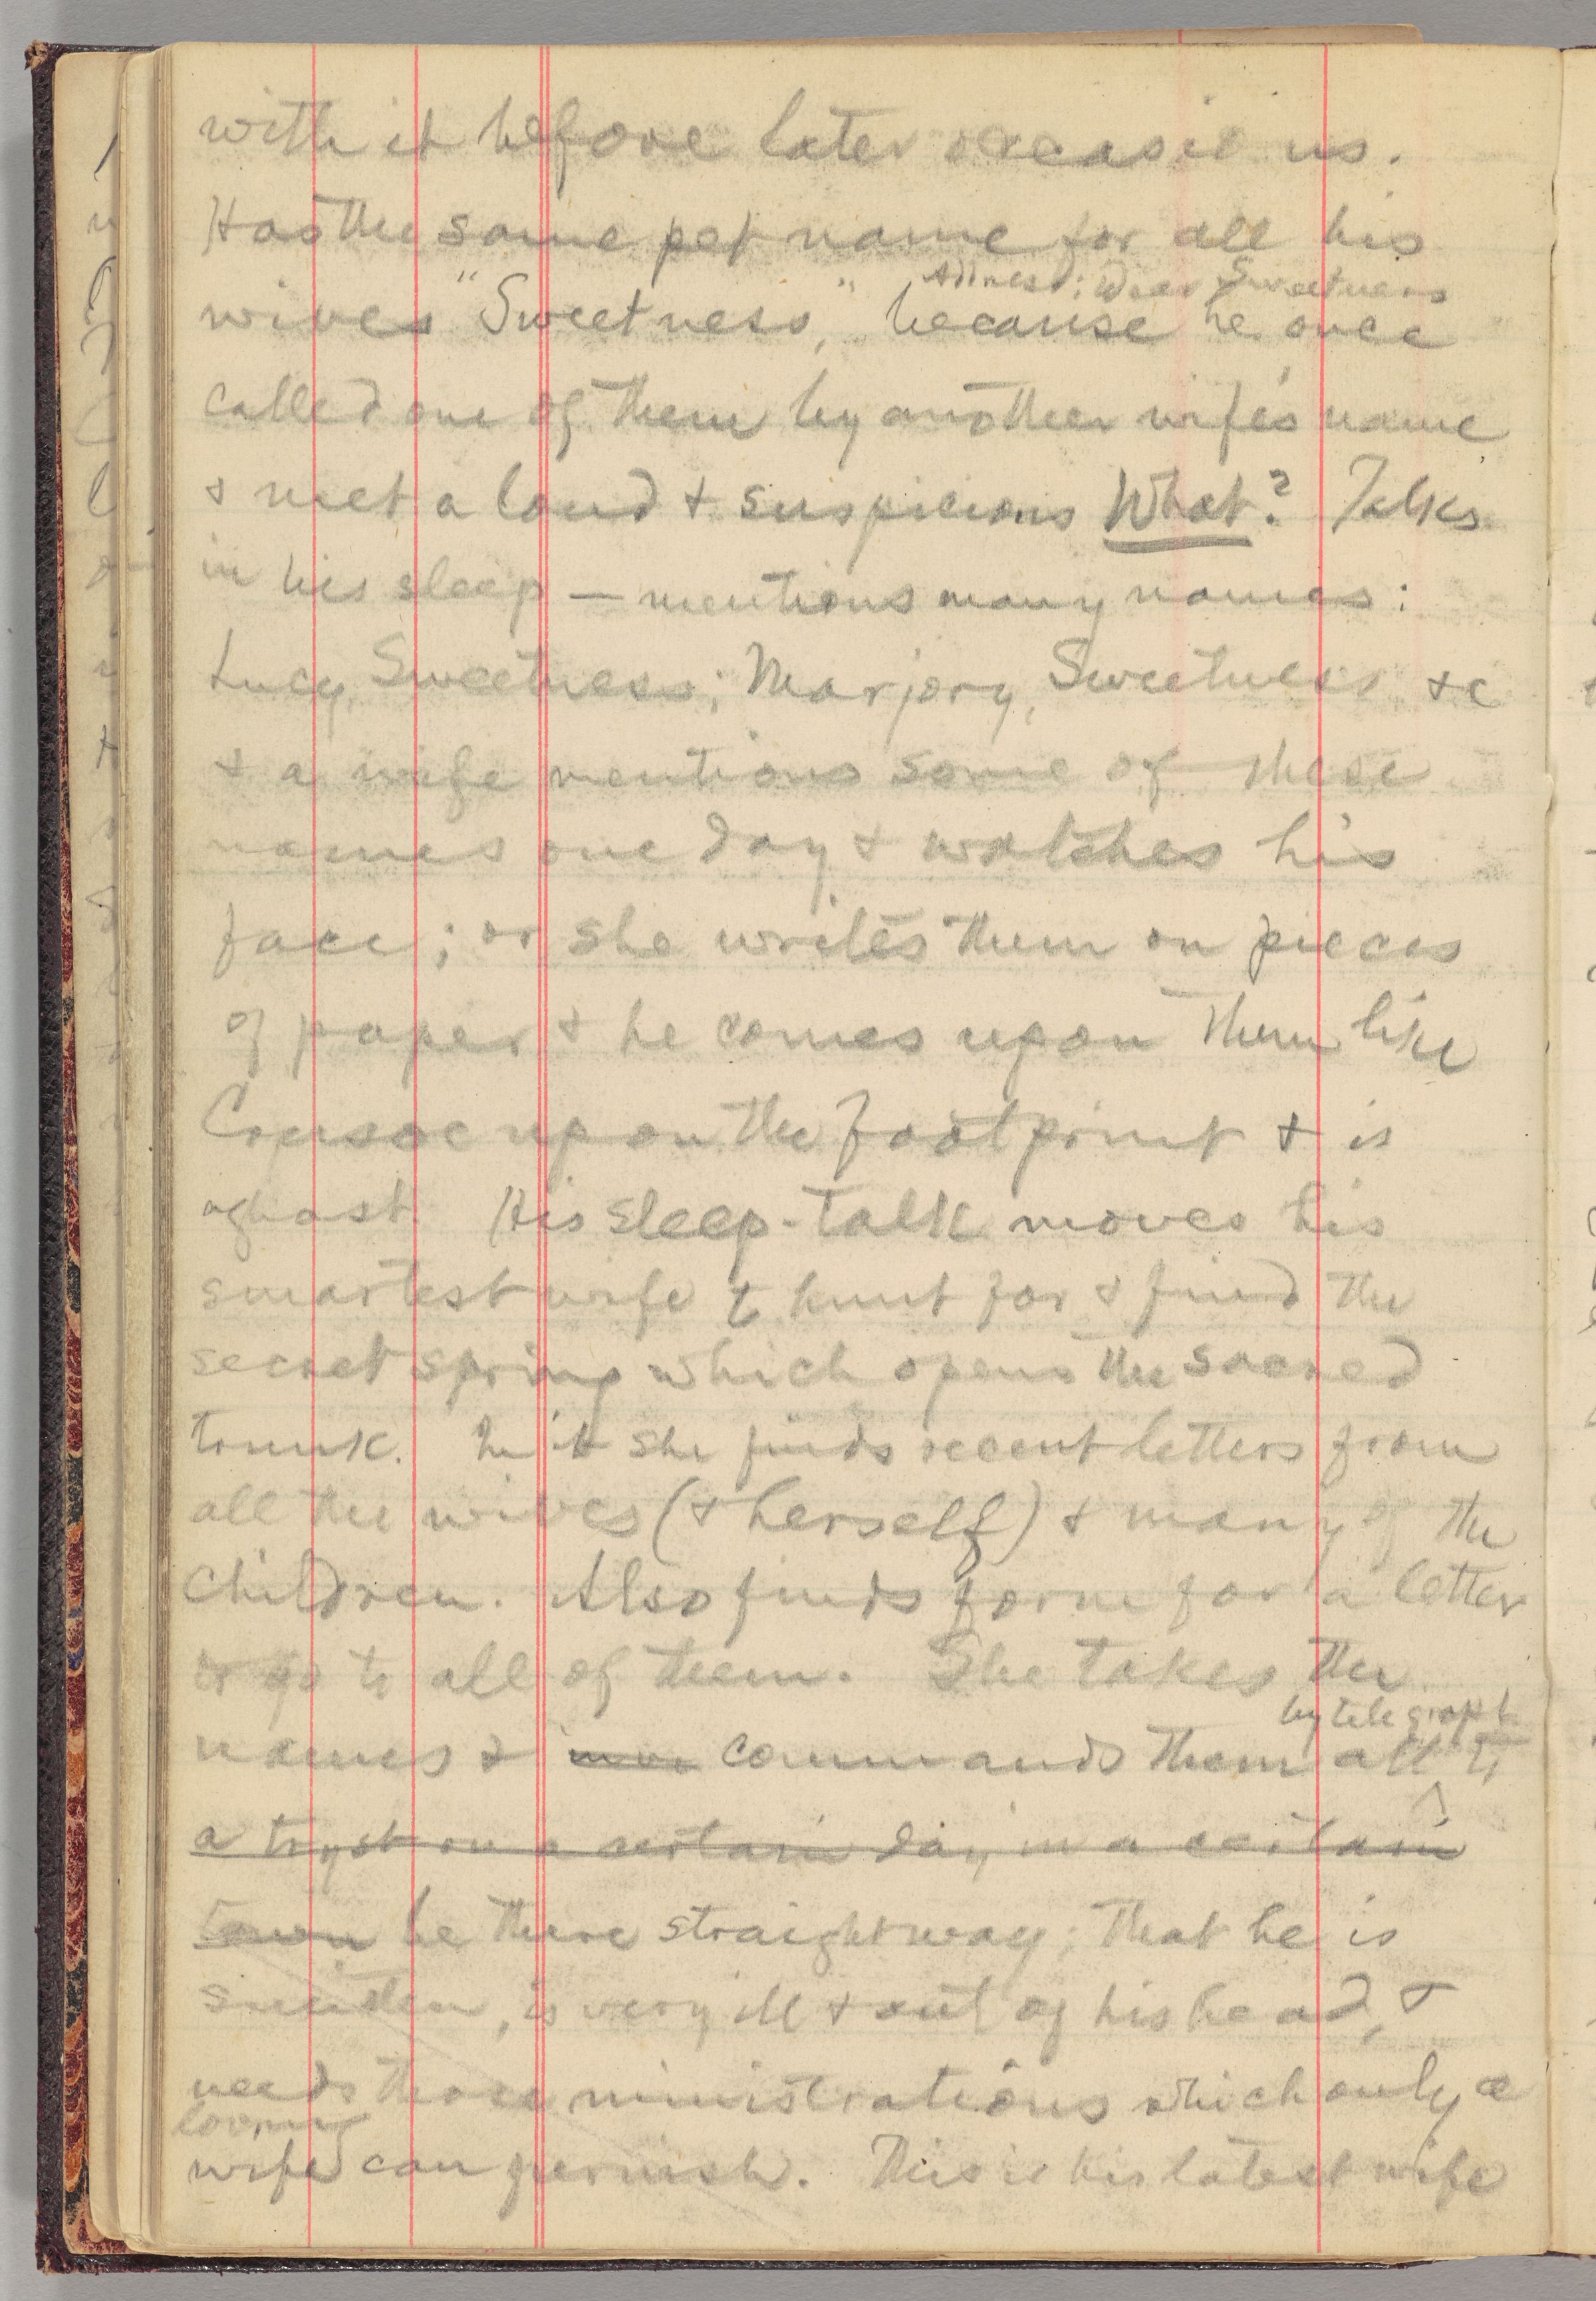 with it before later occasions.
Has the same pet name for all his
Address: Dear Sweetness
wives "Sweetness," because he once
called one of them by another wife's name
& met a loud & suspicious What? Talks
in his sleep — mentions many names:
Lucy, Sweetness; Marjory, Sweetness &c
& a wife mentions some of these
names one day & watches his
face; or she writes them on pieces
of paper & he comes upon them like
Crusoe upon the footprint & is
aghast. His sleep-talk moves his
smartest wife to hunt for & find the
secret spring which opens the sacred
trunk. In it she finds recent letters from
all the wives (& herself) & many of the
children. Also finds form for a letter
to go to all of them. She takes the
by telegraph
names & commands them all to
a tryst on a certain day in a certain
town be there straightway; that he is
smitten, is very ill & out of his head, &
needs those ministrations which only a
loving
wife can furnish. This is his latest wife